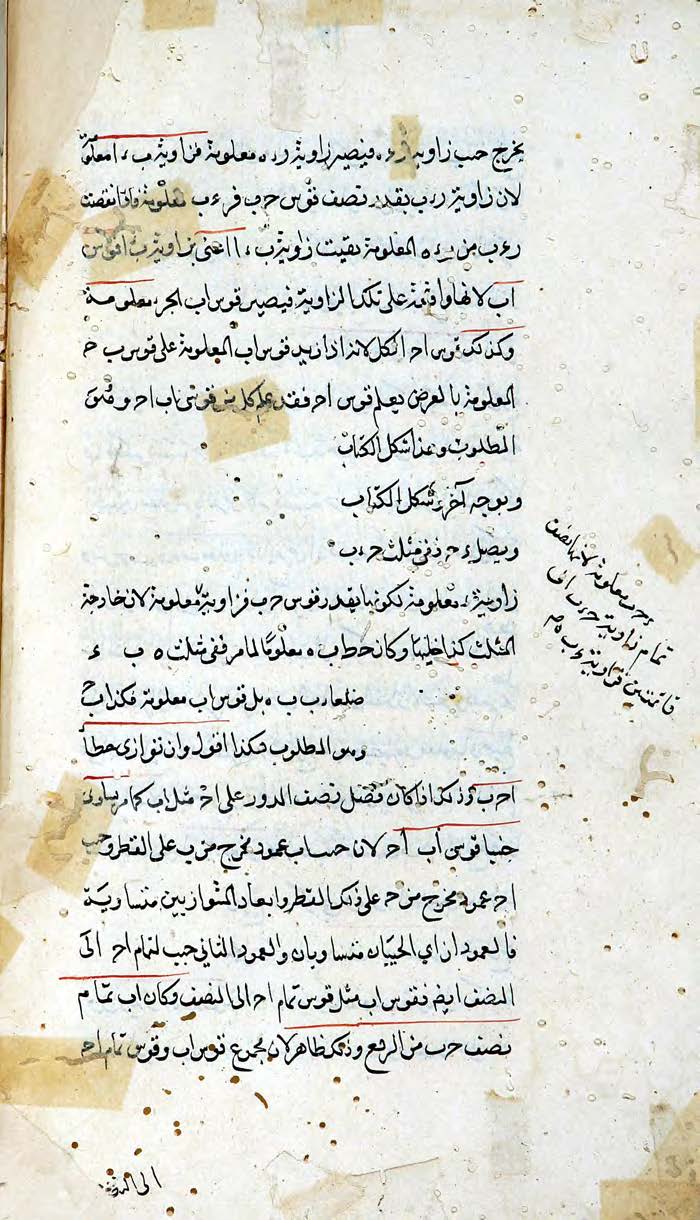 يخرج جيب زاوية رء ه فيصير زاوية رء ه معلومة فزاوية ب ء ا معلومة
لان زاوية رء ب بقدر نصف قوس ح ب فرء ب معلومة فاذا نقصت
رء ب من رء ه المعلومة بقيت زاوية ب ء ا اعنى زاوية ب ا قوس
اب لانها واقعة على تلك الزاوية فيصير قوس اب الجزء معلومة
وكذلك قوس ا ح الكل لانه اذا زيد قوس اب المعلومة على قوس ب ح
المعلومة بالفرض يعلم قوس ا ح فقد علم كل من قوسى اب ا ح وهو
المطلوب وهذا شكل الكتاب
وبوجه آخر شكل الكتاب
ويصل ء ح ففى مثلث ح ء ب
زاوية ء معلومة لكونها بقدر قوس ح ب فزاوية معلومة لان خارجة
المثلث كداخليتها وكان خط ب ه معلوما لما مر ففى مثلث ه ب ء
ضلعا ء ب ب ه بل قوس اب معلومة فكذا ا ح
وهو المطلوب هكذا اقول وان توازى خطا
ا ح ب ء وذلك اذا كان فضل نصف الدور على ا ح مثل اب كما مر يساوى
جيبا قوسى اب ا ح لان جيب اب عمود مخرج من ب على القطر وجيب
ا ح عمود مخرج من ح على ذلك القطر وابعاد المتوازيين متساوية
فالعمودان اى الجيبان متساويان والعمود الثانى جيب لتمام ا ح الى
النصف ايضا فقوس اب مثل قوس تمام ا ح الى النصف وكان اب تمام
نصف ح ب من الربع وذلك ظاهر لان مجموع قوس اب وقوس تمام ا ح
الى النصف
ء ح ب معلومة لانها نصف
تمام زاوية ح ء ب الى
قائمتين فزاوية ء ب ه